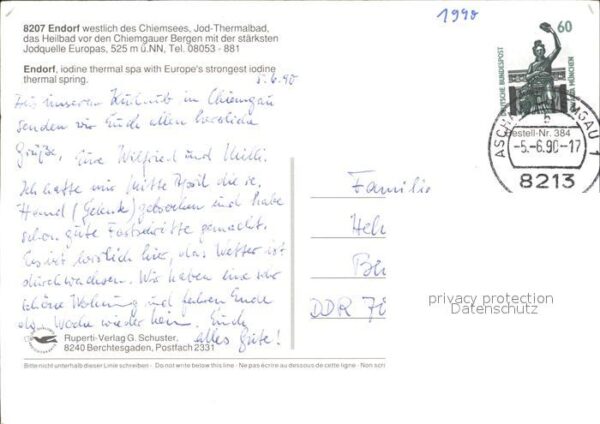 1990
8207 Endorf westlich des Chiemsees, Jod-Thermalbad,
das Heilbad vor den Chiemgauer Bergen mit der stärksten
Jodquelle Europas, 525 m ü.NN, Tel. 08053 - 881
Endorf, iodine thermal spa with Europe's strongest iodine
thermal spring.
5.6.90
60
DEUTSCHE BUNDESPOST
MÜNCHEN
Bestell-Nr. 384
ASCHAU CHIEMGAU 1
b
-5.-6.90-17
8213
unserem in Chiemgau
senden wir Euch allen herzliche
Grüße, Eure Wilfried und
Ich hatte mir Mitte April die re.
Hand (Gelenk) gebrochen und habe
schon gute Fortschritte gemacht.
Es ist herrlich hier, das Wetter ist
durchwachsen. Wir haben eine sehr
schöne Wohnung und fahren Ende
der Woche wieder heim. Euch
alles Gute!
Familie
Hel
Be
DDR 70
privacy protection
Datenschutz
Ruperti-Verlag G. Schuster,
8240 Berchtesgaden, Postfach 2331
Bitte nicht unterhalb dieser Linie schreiben · Do not write below this line · Ne pas écrire au dessous de cette ligne · Non scri